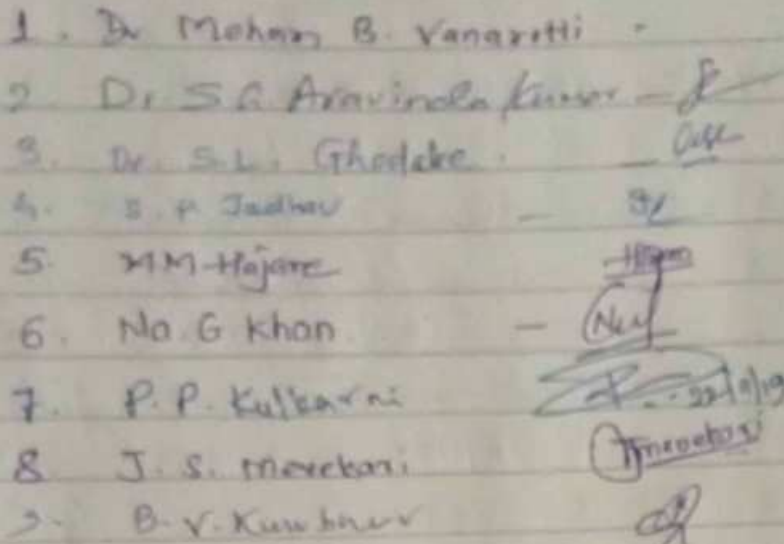 1. Dr Mohan B. Vanarotti -
2 Dr S G Aravinda Kumar -
3. Dr. S. L. Ghodake. -
4. S. P. Jadhav -
5. M M Hajare
6. Na. G Khan -
7. P. P. Kulkarni
8 J. S. Merekari
9. B. V. Kumbhar